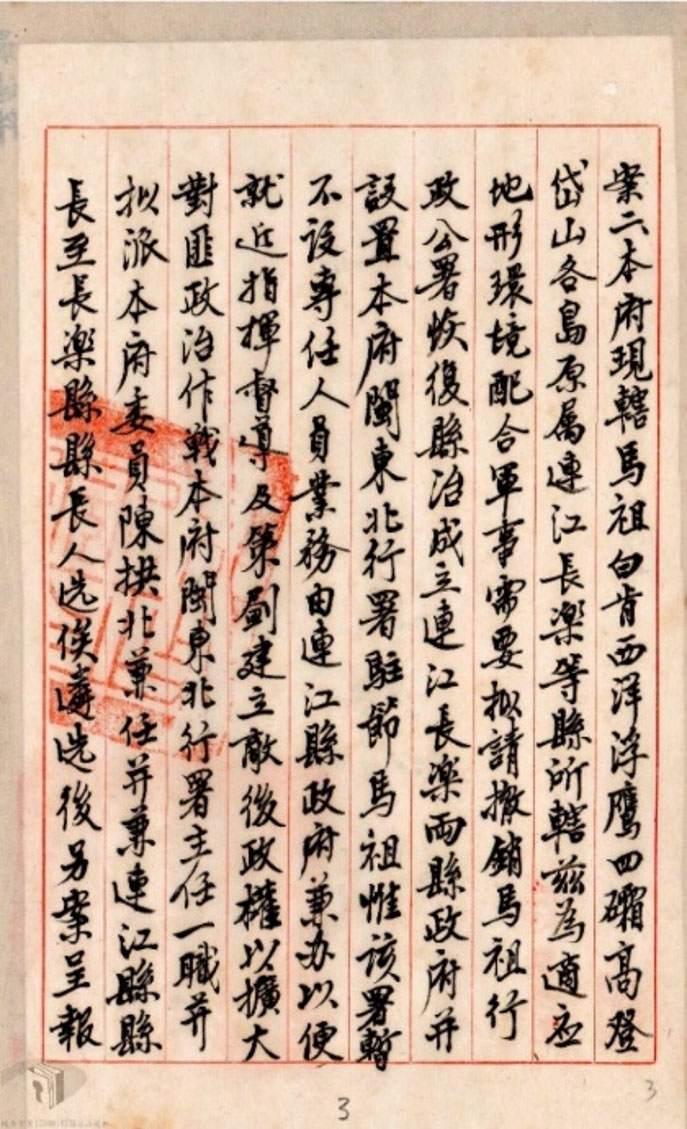 案二本府現轄馬祖白肯西洋浮鷹四礵高登
岱山各島原属連江長楽等縣所轄茲為適应
地形環境配合軍事需要拟請撤銷馬祖行
政公署恢復縣治成立連江長楽両縣政府并
設置本府閩東北行署駐節馬祖惟該署暫
不设專任人員業務由連江縣政府兼办以便
就近指揮督导及策劃建立敵後政權以擴大
對匪政治作戰本府閩東北行署主任一職并
拟派本府委員陳拱北兼任并兼連江縣縣
長至長楽縣縣長人选俟遴选後另案呈報
3
3